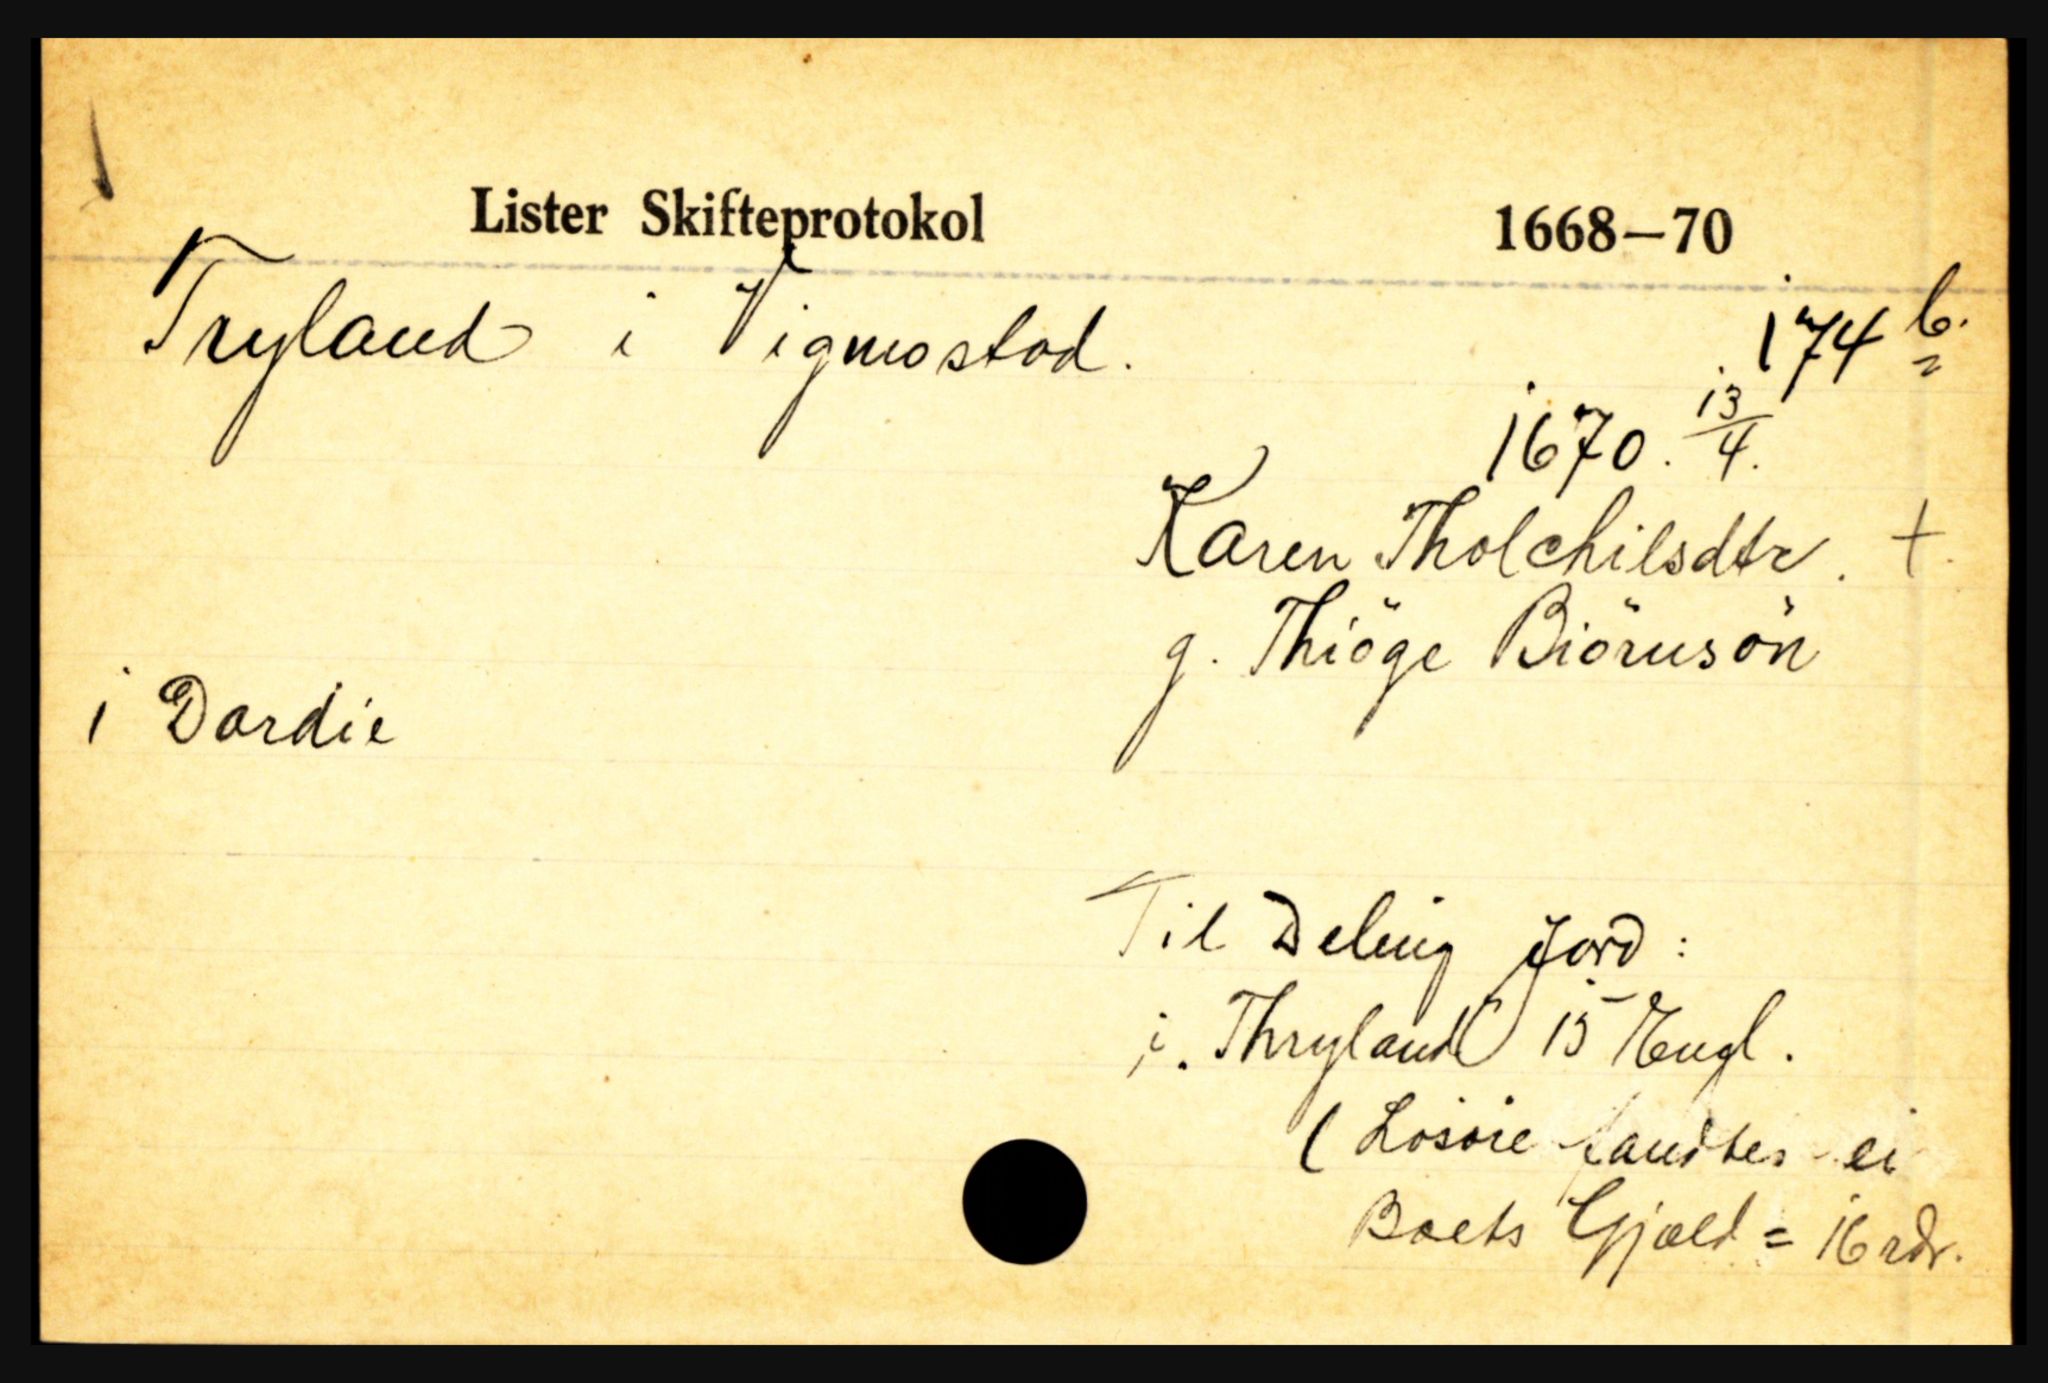 Lister Skifteprotokol 1668—70
Tryland i Vigmostad. 174 b.
1670. 13/4.
Karen Tholchilsdtr. †.
g. Thiöge Biörnsön
i Dardie
Til Deling Jord:
i. Thryland 15 Engl.
(Losøre fandtes ei
Boets Gjæld = 16 rdr.